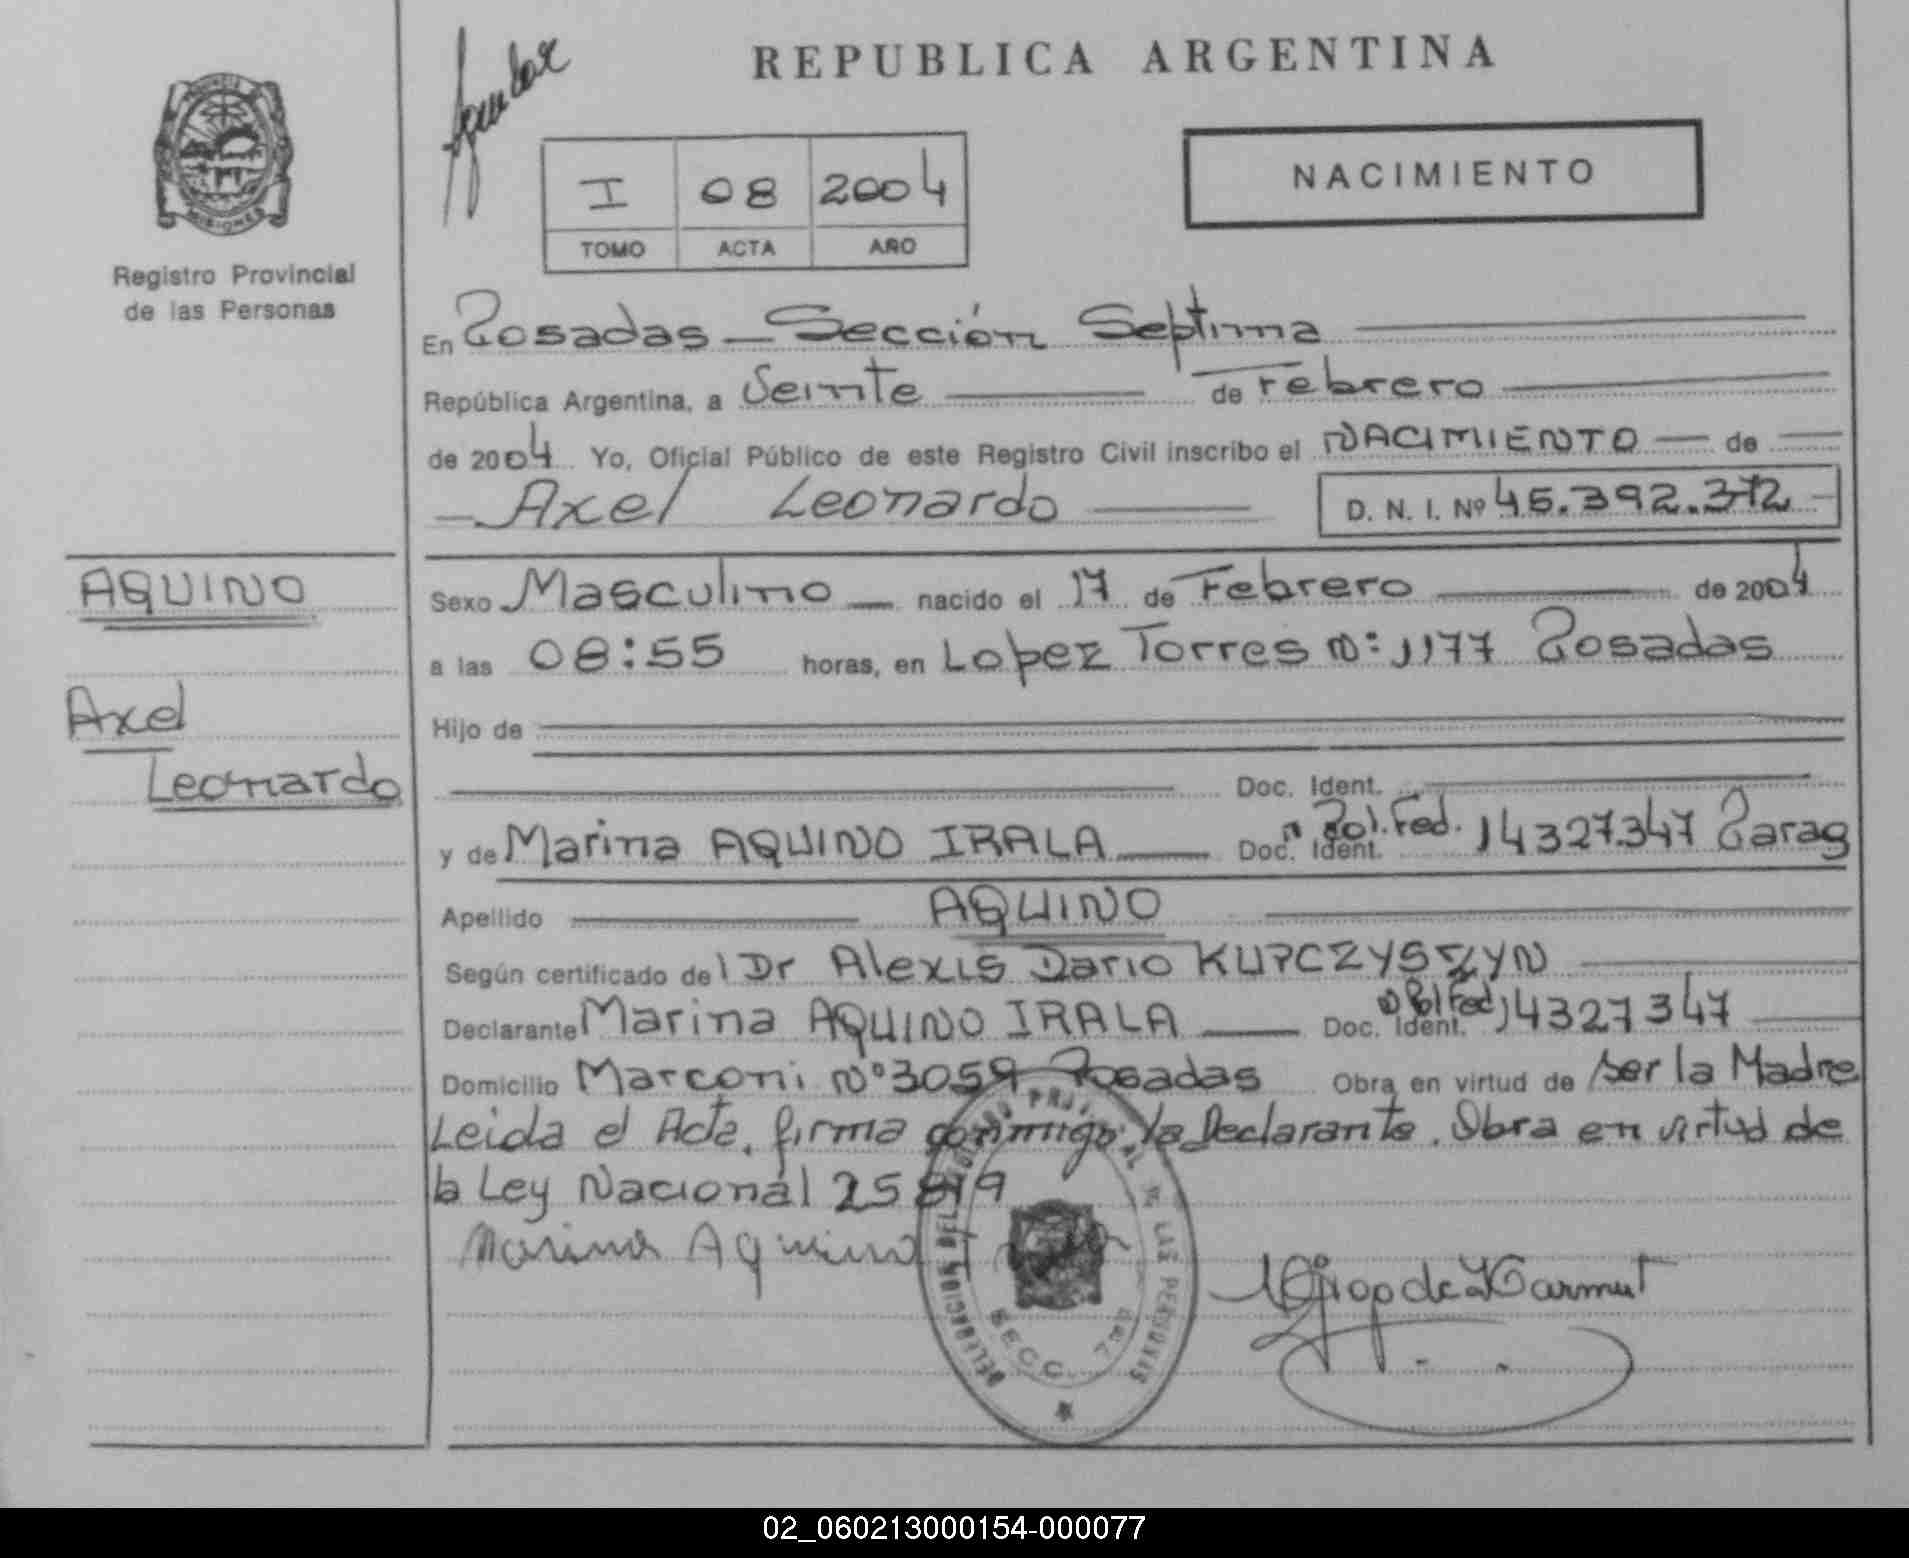 REPUBLICA ARGENTINA
NACIMIENTO
I 08 2004
TOMO ACTA AÑO
PROVINCIA
MISIONES
Registro Provincial
de las Personas
En Posadas - Sección Septima
República Argentina, a Veinte de Febrero
de 2004 Yo, Oficial Público de este Registro Civil inscribo el NACIMIENTO de
Axel Leonardo D. N. I. Nº 45.392.372
AQUINO
Axel
Leonardo
Sexo Masculino nacido el 17 de Febrero de 2004
a las 08:55 horas, en Lopez Torres Nº: 1177 Posadas
Hijo de
Doc. Ident.
y de Marina AQUINO IRALA Doc. Ident. Pol. Fed. 14327347 Parag
Apellido AQUINO
Según certificado del Dr Alexis Dario KUPCZYSZYN
Declarante Marina AQUINO IRALA Doc. Ident. Pol Fed 14327347
Domicilio Marconi Nº 3059 Posadas Obra en virtud de ser la Madre
Leida el Acta, firma conmigo la Declarante. Obra en virtud de
la Ley Nacional 25819
Marina Aquino
DELEGACION DEL REGISTRO PROVINCIAL DE LAS PERSONAS
SECC. 7ma
02_060213000154-000077